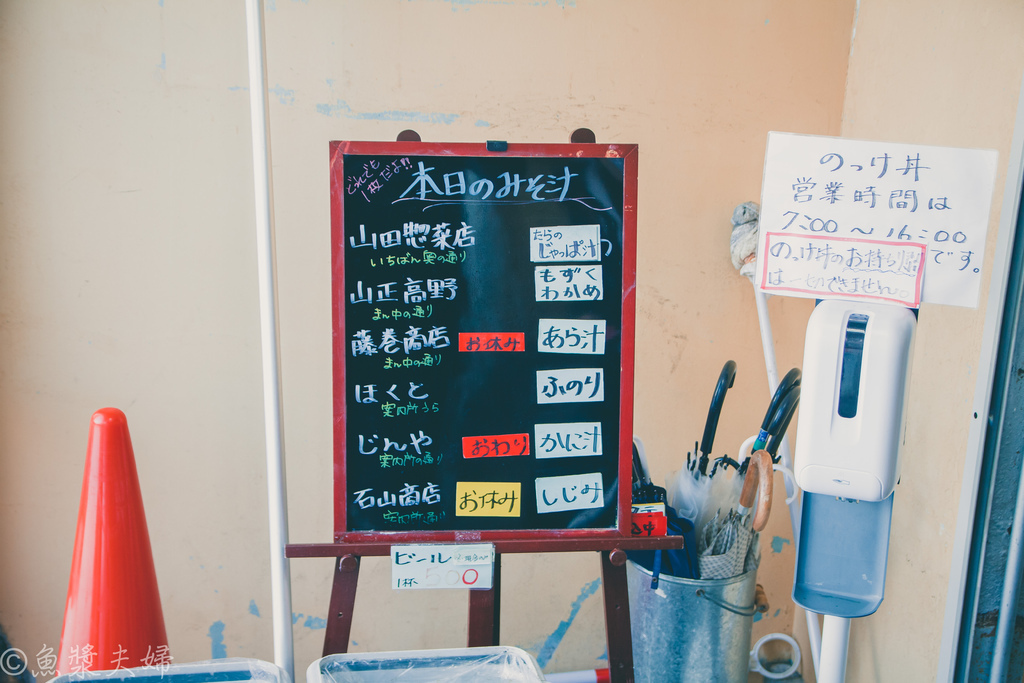 どれでも
1枚だよ!!
本日のみそ汁
山田惣菜店
いちばん奥の通り
たらの
じゃっぱ汁
山正高野
まん中の通り
もずく
わかめ
藤巻商店
まん中の通り
お休み
あら汁
ほくと
案内所うら
ふのり
じんや
案内所の通り
おわり
かに汁
石山商店
案内所通り
お休み
しじみ
ビール
1杯 500
のっけ丼
営業時間は
7:00～16:00
です。
のっけ丼のお持ち帰
は一切できません。
©魚漿夫婦